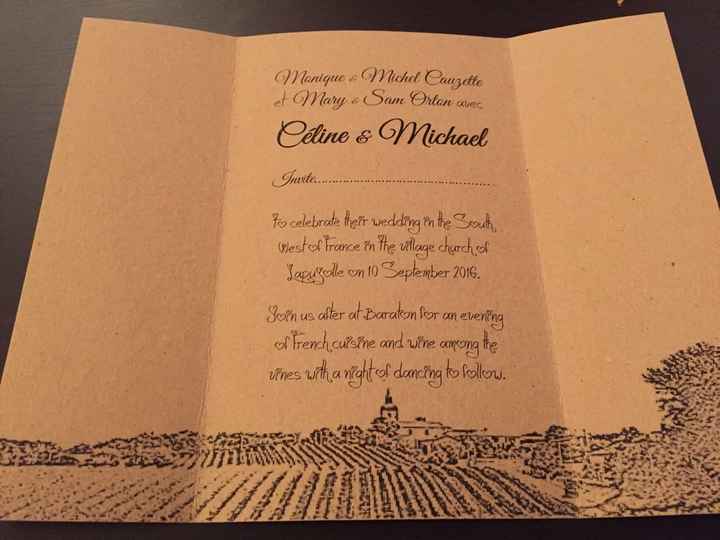 Monique & Michel Cauzette
et Mary & Sam Orton avec
Céline & Michael
Invite...................................................
To celebrate their wedding in the South,
West of France in the village church of
Lapuzolle on 10 September 2016.
Join us after at Baraton for an evening
of French cuisine and wine among the
vines with a night of dancing to follow.